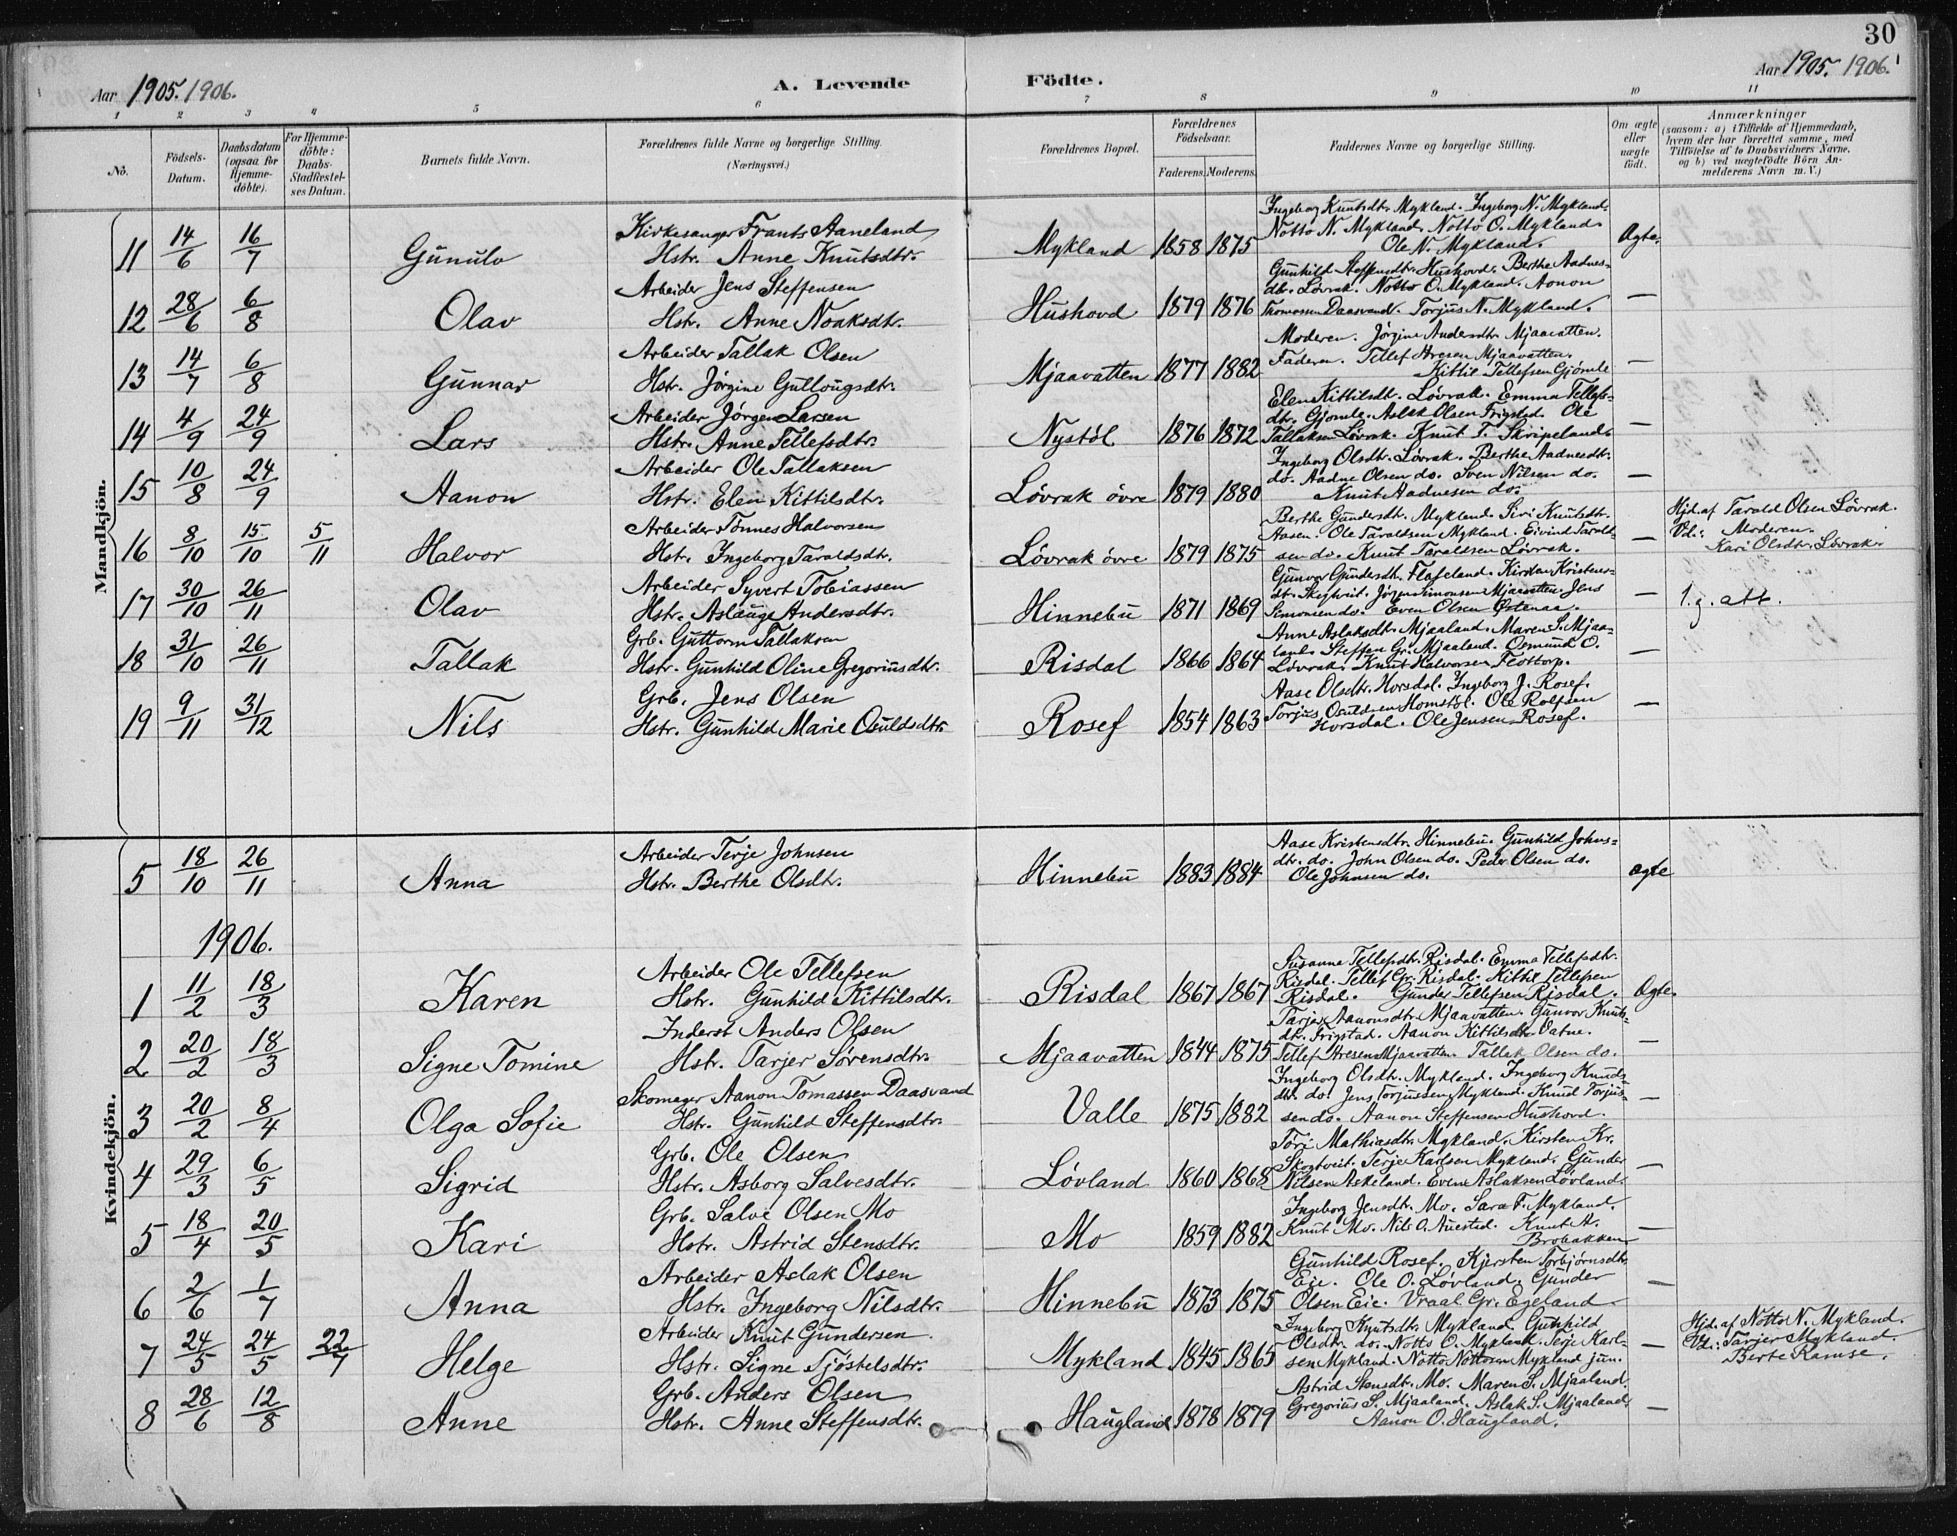 30
Aar 1905. 1906.
A. Levende Födte.
Aar 1905. 1906.
1 2 3 4 5 6 7 8 9 10 11
No.
Födsels-Datum.
Daabsdatum (ogsaa for Hjemme-döbte).
For Hjemme-döbte: Daabs-Stadfæstel-ses Datum.
Barnets fulde Navn.
Forældrenes fulde Navne og borgerlige Stilling.
(Næringsvei.)
Forældrenes Bopæl.
Forældrenes Födselsaar.
Faderens. Moderens.
Faddernes Navne og borgerlige Stilling.
Om ægte eller uægte födt.
Anmærkninger
(saasom: a) i Tilfælde af Hjemmedaab, hvem der har forrettet samme, med Tilföielse af to Daabsvidners Navne, og b) ved uægtefödte Börn An-melderens Navn m. V.)
Mandkjön.
11 14/6 16/7 Gunulv
Kirkesanger Frants Aaneland
Hstr. Anne Knutsdtr.
Mykland 1858 1875
Ingeborg Knutsdtr. Mykland. Ingeborg N. Mykland.
Notto N. Mykland. Notto O. Mykland.
Ole N. Mykland.
Ægte.
12 28/6 6/8 Olav
Arbeider Jens Steffensen
Hstr. Anne Noaksdtr.
Hushovd 1879 1876
Gunhild Steffensdtr. Hushovd. Berthe Aadnes-
dtr. Løvrak. Notto O. Mykland. Aanon
Thomassen Daasvand. Torjus N. Mykland.
—
13 14/7 6/8 Gunnar
Arbeider Tallak Olsen
Hstr. Jörgine Gullougsdtr.
Mjaavatten 1877 1882
Moderen. Jörgine Andersdtr. Mjaavatten.
Faderen. Tellef Aresen Mjaavatten.
Kittil Tellefsen Gjömle
—
14 4/9 24/9 Lars
Arbeider Jörgen Larsen
Hstr. Anne Tellefsdtr.
Nystöl 1876 1872
Elen Kittilsdtr. Lövrak. Emma Tellefs-
dtr. Gjömle. Aslak Olsen Frigsted. Ole
Tallaksen Lövrak. Knut T. Skripeland.
—
15 10/8 24/9 Aanon
Arbeider Ole Tallaksen
Hstr. Elen Kittilsdtr.
Lövrak övre 1879 1880
Ingeborg Olsdtr. Lövrak. Berthe Aadnesdtr.
do. Aadne Olsen do. Sven Nilsen do.
Knut Aadnesen do.
—
16 8/10 15/10 5/11 Halvor
Arbeider Tönnes Halvorsen
Hstr. Ingeborg Taraldsdtr.
Lövrak övre 1879 1875
Berthe Gundersdtr. Mykland. Siri Knutsdtr.
Aasen. Ole Taraldsen Mykland. Eivind Tarald-
sen do. Knut Taraldsen Lövrak.
—
Hjd. af Tarald Olsen Lövrak.
Vd.: Moderen.
Kari Olsdtr. Lövrak.
17 30/10 26/11 Olav
Arbeider Syvert Tobiassen
Hstr. Aslaug Andersdtr.
Hinnebu 1871 1869
Gunvor Gundersdtr. Flateland. Kirsten Kristens-
dtr. Jörgen Simonsen Mjaavatten Jens
Simonsen do. Even Olsen
—
18 31/10 26/11 Tallak
Grb. Guttorm Tallaksen
Hstr. Gunhild Oline Gregoriusdtr.
Risdal 1866 1864
Anne Aslaksdtr. Mjaaland. Maren S. Mjaa-
land. Steffen Gr. Mjaaland. Osmund O.
Lövrak. Knut Halvorsen
—
19 9/11 31/12 Nils
Grb. Jens Olsen
Hstr. Gunhild Marie Osuldsdtr.
Rosef 1854 1863
Aase Olsdtr. Horsdal. Ingeborg J. Rosef.
Torjus Osuldsen Homstöl. Ole Rolfsen
Horsdal. Ole Jensen Rosef.
—
Kvindekjön.
5 18/10 26/11 Anna
Arbeider Terje Johnsen
Hstr. Berthe Olsdtr.
Hinnebu 1883 1884
Aase Kristensdtr. Hinnebu. Gunhild Johns-
dtr. do. John Olsen do. Peder Olsen do.
Ole Johnsen do.
ægte
1906.
1 11/2 18/3 Karen
Arbeider Ole Tellefsen
Hstr. Gunhild Kittilsdtr.
Risdal 1867 1867
Susanne Tellefsdtr. Risdal. Emma Tellefsdtr.
Risdal. Tellef Gr. Risdal. Kittil Tellefsen
Risdal. Gunder Tellefsen Risdal.
Ægte.
2 20/2 18/3 Signe Tomine
Inderst Anders Olsen
Hstr. Tarjer Sörensdtr.
Mjaavatten 1844 1875
Tarjer Aanonsdtr. Mjaavatten. Gunvor Knuts-
dtr. Frigstad. Aanon Kittilsen Vatne.
Tellef Aresen Mjaavatten. Tallak Olsen do.
—
3 20/2 8/4 Olga Sofie
Skomager Aanon Tomassen Daasvand
Hstr. Gunhild Steffensdtr.
Valle 1875 1882
Ingeborg Olsdtr. Mykland. Ingeborg Knuds-
dtr. do. Jens Torjussen Mykland. Knud Torjus-
sen do. Aanon Steffensen Hushovd.
—
4 29/3 6/5 Sigrid
Grb. Ole Olsen
Hstr. Asborg Salvesdtr.
Lövland 1860 1868
Töri Mathiasdtr. Mykland. Kirsten Kr.
Skogtveit. Terje Karlsen Mykland. Gunder
Nilsen Askeland. Even Aslaksen Lövland.
—
5 18/4 20/5 Kari
Grb. Salve Olsen Mo
Hstr. Astrid Stensdtr.
Mo 1859 1882
Ingeborg Jensdtr. Mo. Sara T. Mykland.
Knut Mo. Nils O. Auestad. Knut A.
Brobakken
—
6 2/6 1/7 Anna
Arbeider Aslak Olsen
Hstr. Ingeborg Nilsdtr.
Hinnebu 1873 1875
Gunhild Rosef. Kjersten Torbjörnsdtr.
Eie. Ole O. Lövland. Gunder
Olsen Eie. Vraal Gr. Egeland.
—
7 24/5 24/5 22/7 Helge
Arbeider Knut Gundersen.
Hstr. Signe Tjöstelsdtr.
Mykland 1845 1865
Ingeborg Knutsdtr. Mykland. Gunhild
Olsdtr. do. Notto O. Mykland. Terje Karl-
sen Mykland. Notto Nottosen Mykland jun.
—
Hjd. af Notto N. Mykland.
Vd.: Tarjer Mykland.
Berte Ramse.
8 28/6 12/8 Anne
Grb. Anders Olsen
Hstr. Anne Steffensdtr.
Haugland 1878 1879
Astrid Stensdtr. Mo. Maren S. Mjaaland
Gregorius S. Mjaaland. Aslak S. Mjaaland.
Aanon O. Haugland.
—